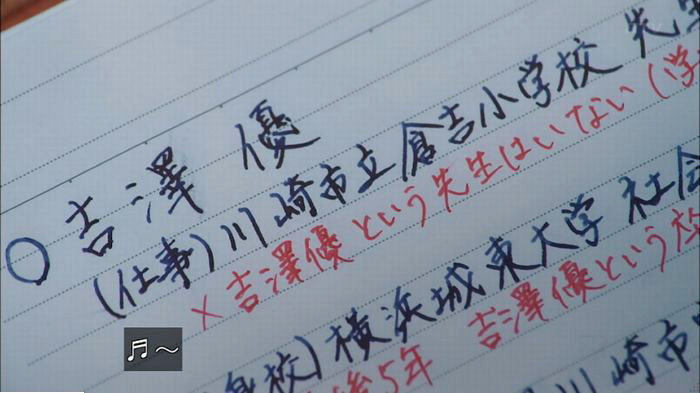 ○ 吉澤 優
(仕事)川崎市立倉吉小学校 先生
×吉澤優という先生はいない(学
校)横浜城東大学 社会
後5年 吉澤優という
川崎市
♬〜